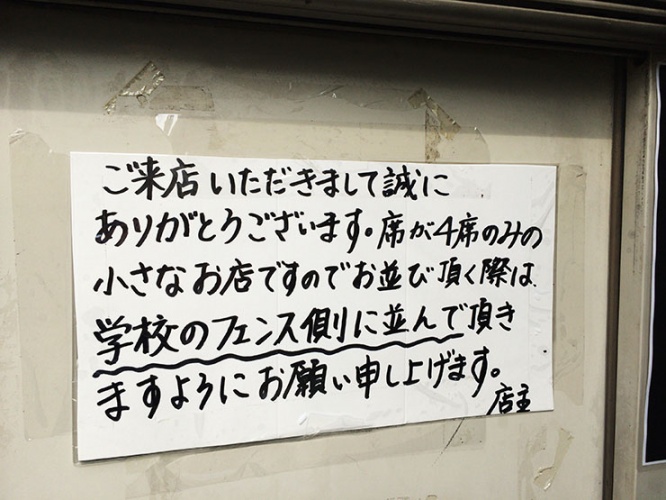 ご来店いただきまして誠に
ありがとうございます。席が4席のみの
小さなお店ですのでお並び頂く際は、
学校のフェンス側に並んで頂き
ますようにお願い申し上げます。
店主